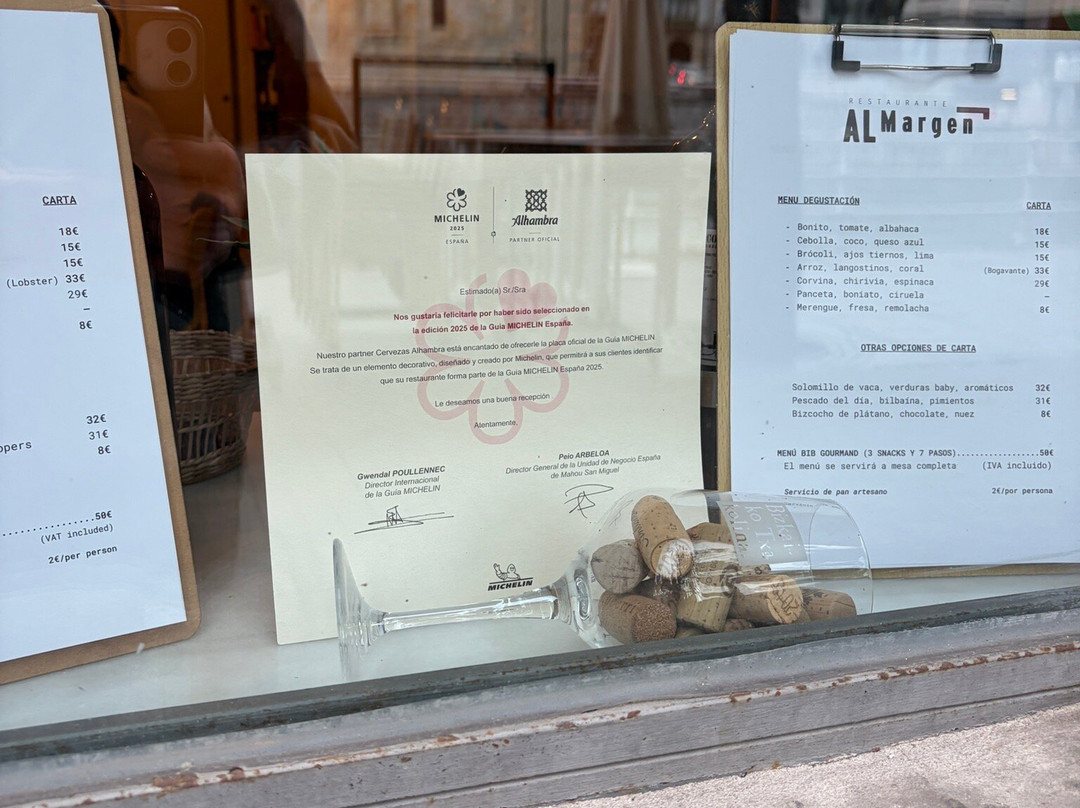 CARTA
18€
15€
15€
(Lobster) 33€
29€
–
8€
32€
31€
8€
50€
(VAT included)
2€/per person
MICHELIN
2025
ESPAÑA
Alhambra
PARTNER OFICIAL
Estimado(a) Sr./Sra
Nos gustaría felicitarle por haber sido seleccionado en
la edición 2025 de la Guía MICHELIN España.
Nuestro partner Cervezas Alhambra está encantado de ofrecerle la placa oficial de la Guía MICHELIN
Se trata de un elemento decorativo, diseñado y creado por Michelin, que permitirá a sus clientes identificar
que su restaurante forma parte de la Guía MICHELIN España 2025.
Le deseamos una buena recepción
Atentamente,
Gwendal POULLENNEC
Director Internacional
de la Guía MICHELIN
Peio ARBELOA
Director General de la Unidad de Negocio España
de Mahou San Miguel
MICHELIN
RESTAURANTE
AL Margen
MENU DEGUSTACIÓN
CARTA
- Bonito, tomate, albahaca 18€
- Cebolla, coco, queso azul 15€
- Brócoli, ajos tiernos, lima 15€
- Arroz, langostinos, coral (Bogavante) 33€
- Corvina, chirivia, espinaca 29€
- Panceta, boniato, ciruela –
- Merengue, fresa, remolacha 8€
OTRAS OPCIONES DE CARTA
Solomillo de vaca, verduras baby, aromáticos 32€
Pescado del día, bilbaína, pimientos 31€
Bizcocho de plátano, chocolate, nuez 8€
MENÚ BIB GOURMAND (3 SNACKS Y 7 PASOS).................50€
El menú se servirá a mesa completa (IVA incluido)
Servicio de pan artesano 2€/por persona